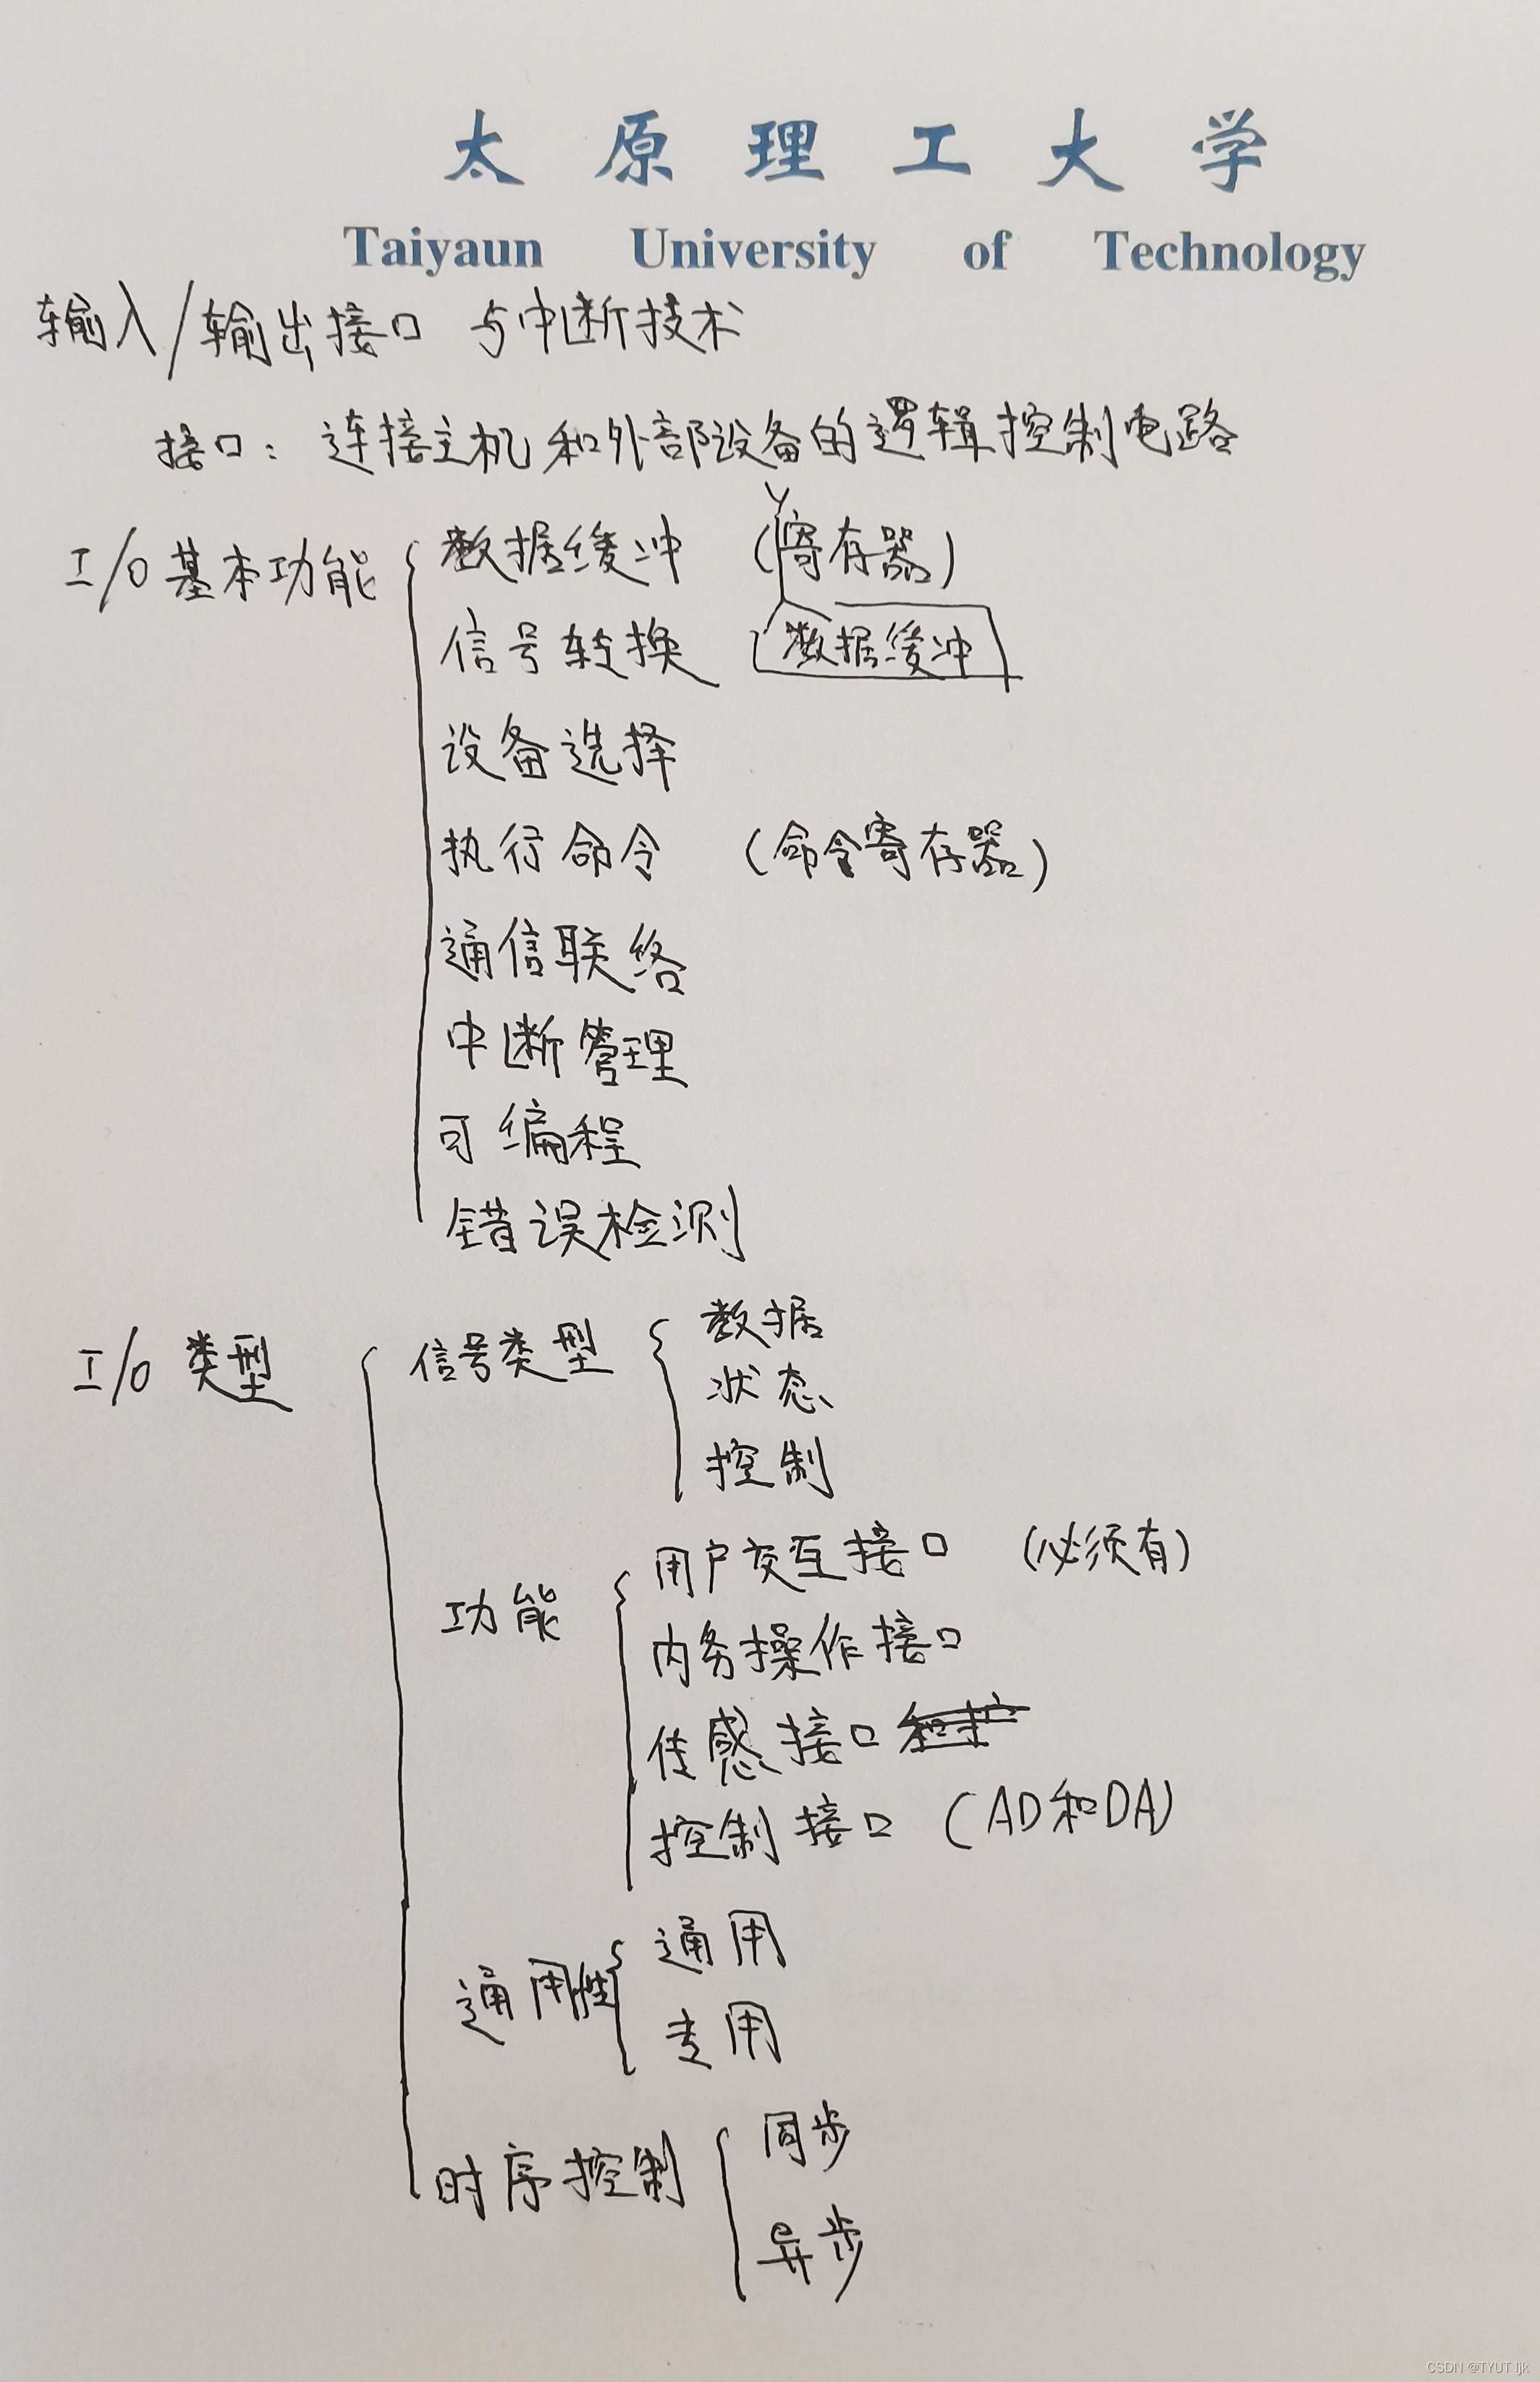 太原理工大学
Taiyaun University of Technology
输入/输出接口 与中断技术
接口：连接主机和外部设备的逻辑控制电路
I/O基本功能
数据缓冲 (寄存器)
信号转换 数据缓冲
设备选择
执行命令 (命令寄存器)
通信联络
中断管理
可编程
错误检测
I/O 类型
信号类型
数据
状态
控制
功能
用户交互接口 (必须有)
内务操作接口
传感接口
控制接口 (AD和DA)
通用性
通用
专用
时序控制
同步
异步
CSDN @TYUT ljk